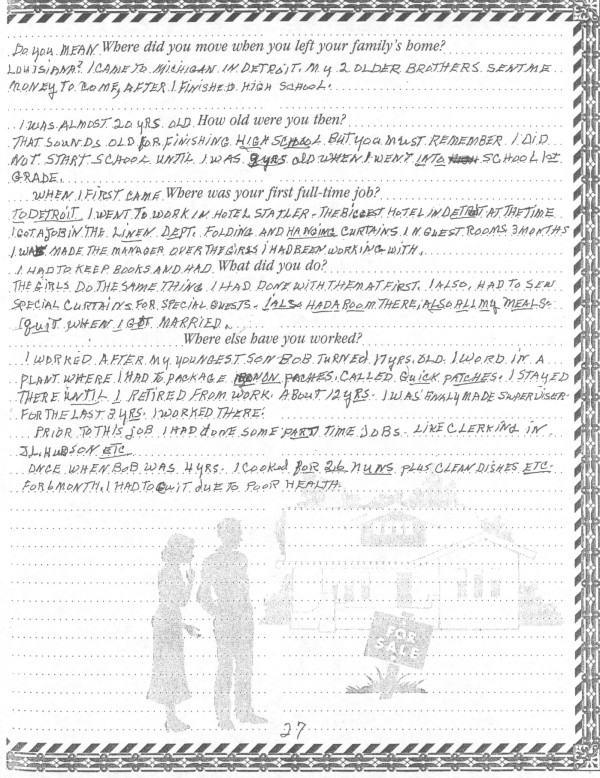 DO YOU MEAN Where did you move when you left your family's home?
LOUISIANA? I CAME TO MICHIGAN IN DETROIT. MY 2 OLDER BROTHERS SENT ME
MONEY TO COME, AFTER I FINISHED HIGH SCHOOL.
I WAS ALMOST 20 YRS. OLD. How old were you then?
THAT SOUNDS OLD FOR FINISHING HIGH SCHOOL. BUT YOU MUST REMEMBER I DID
NOT START SCHOOL UNTIL I WAS 9 YRS OLD WHEN I WENT INTO SCHOOL 1ST
GRADE.
WHEN I FIRST CAME Where was your first full-time job?
TO DETROIT I WENT TO WORK IN HOTEL STATLER - THE BIGGEST HOTEL IN DETROIT AT THE TIME
I GOT A JOB IN THE LINEN DEPT. FOLDING AND HANGING CURTAINS IN GUEST ROOMS 3 MONTHS
I WAS MADE THE MANAGER OVER THE GIRLS I HAD BEEN WORKING WITH.
I HAD TO KEEP BOOKS AND HAD What did you do?
THE GIRLS DO THE SAME THING I HAD DONE WITH THEM AT FIRST. I ALSO, HAD TO SEN
SPECIAL CURTAINS FOR SPECIAL GUESTS. I ALSO HAD A ROOM THERE, ALSO ALL MY MEALS.
I QUIT WHEN I GOT MARRIED.
Where else have you worked?
I WORKED AFTER MY YOUNGEST SON BOB TURNED 17 YRS. OLD. I WORD IN A
PLANT WHERE I HAD TO PACKAGE PACHES. CALLED QUICK PATCHES. I STAYED
THERE UNTIL I RETIRED FROM WORK. ABOUT 12 YRS. I WAS MADE SUPERVISER
FOR THE LAST 3 YRS. I WORKED THERE.
PRIOR TO THIS JOB I HAD DONE SOME PART TIME JOBS. LIKE CLERKING IN
J.L. HUDSON ETC
ONCE WHEN BOB WAS 4 YRS. I COOKED FOR 26 NUNS PLUS CLEAN DISHES ETC.
FOR 6 MONTH. I HAD TO QUIT DUE TO POOR HEALTH.
FOR
SALE
27